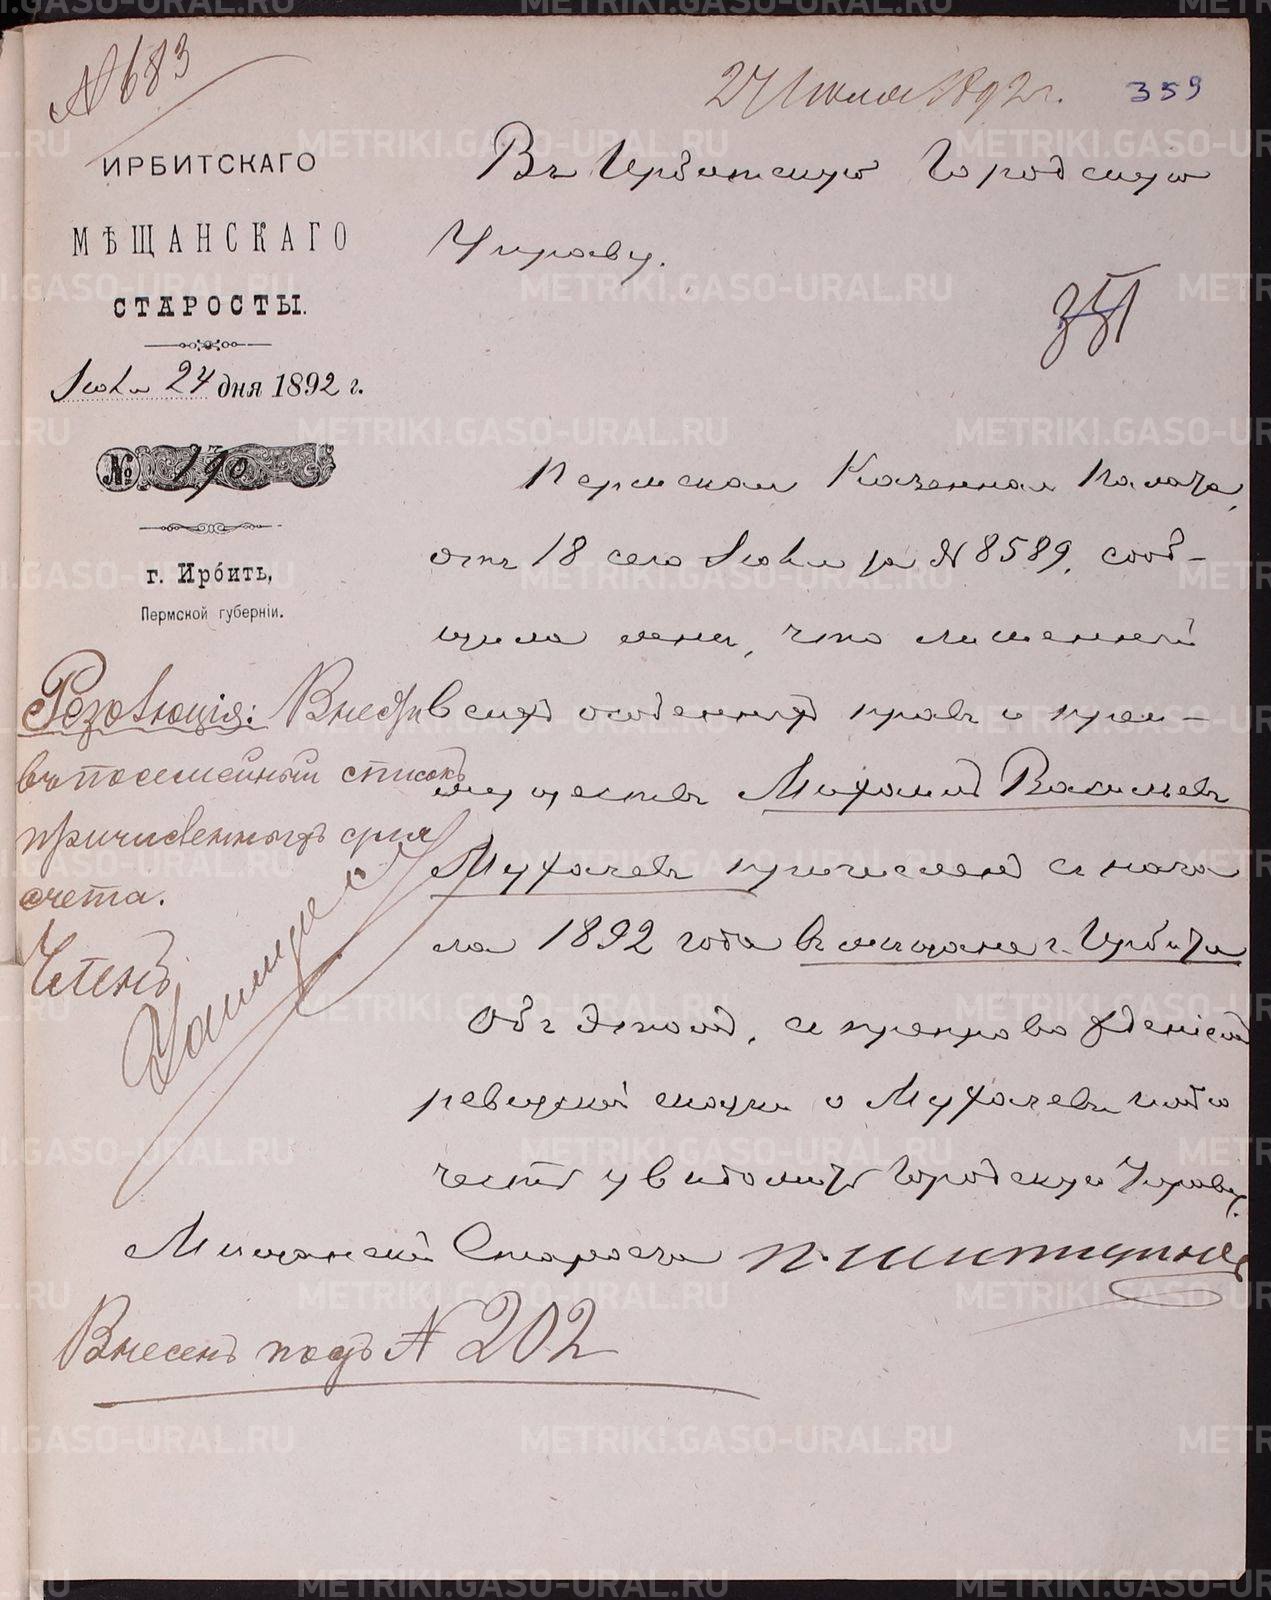 № 683
27 Июля 1892 г.
359
ИРБИТСКАГО
МѢЩАНСКАГО
СТАРОСТЫ.
Іюля 24 дня 1892 г.
№ 190
г. Ирбить,
Пермской губерніи.
Въ Ирбитскую Городскую
Управу.
Пермская Казенная Палата,
отъ 18 сего Іюля за № 8589, сооб-
щила мнѣ, что лишенный
всѣхъ особенныхъ правъ и преи-
муществъ Михаилъ Васильевъ
Мухачевъ причисленъ съ нача
ла 1892 года въ мѣщане г. Ирбита
Объ этомъ, съ препровожденіемъ
ревизской сказки о Мухачевѣ имѣю
честь увѣдомить Городскую Управу.
Мѣщанскій Староста
Резолюція: Внести
въ посемейный списокъ
причисленныхъ для
счета.
Членъ
Внесенъ подъ № 202
METRIKI.GASO-URAL.RU